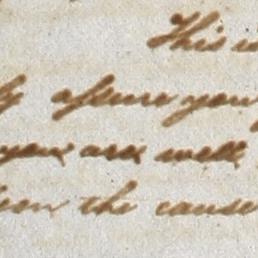 This
assure you
you are well
the cause